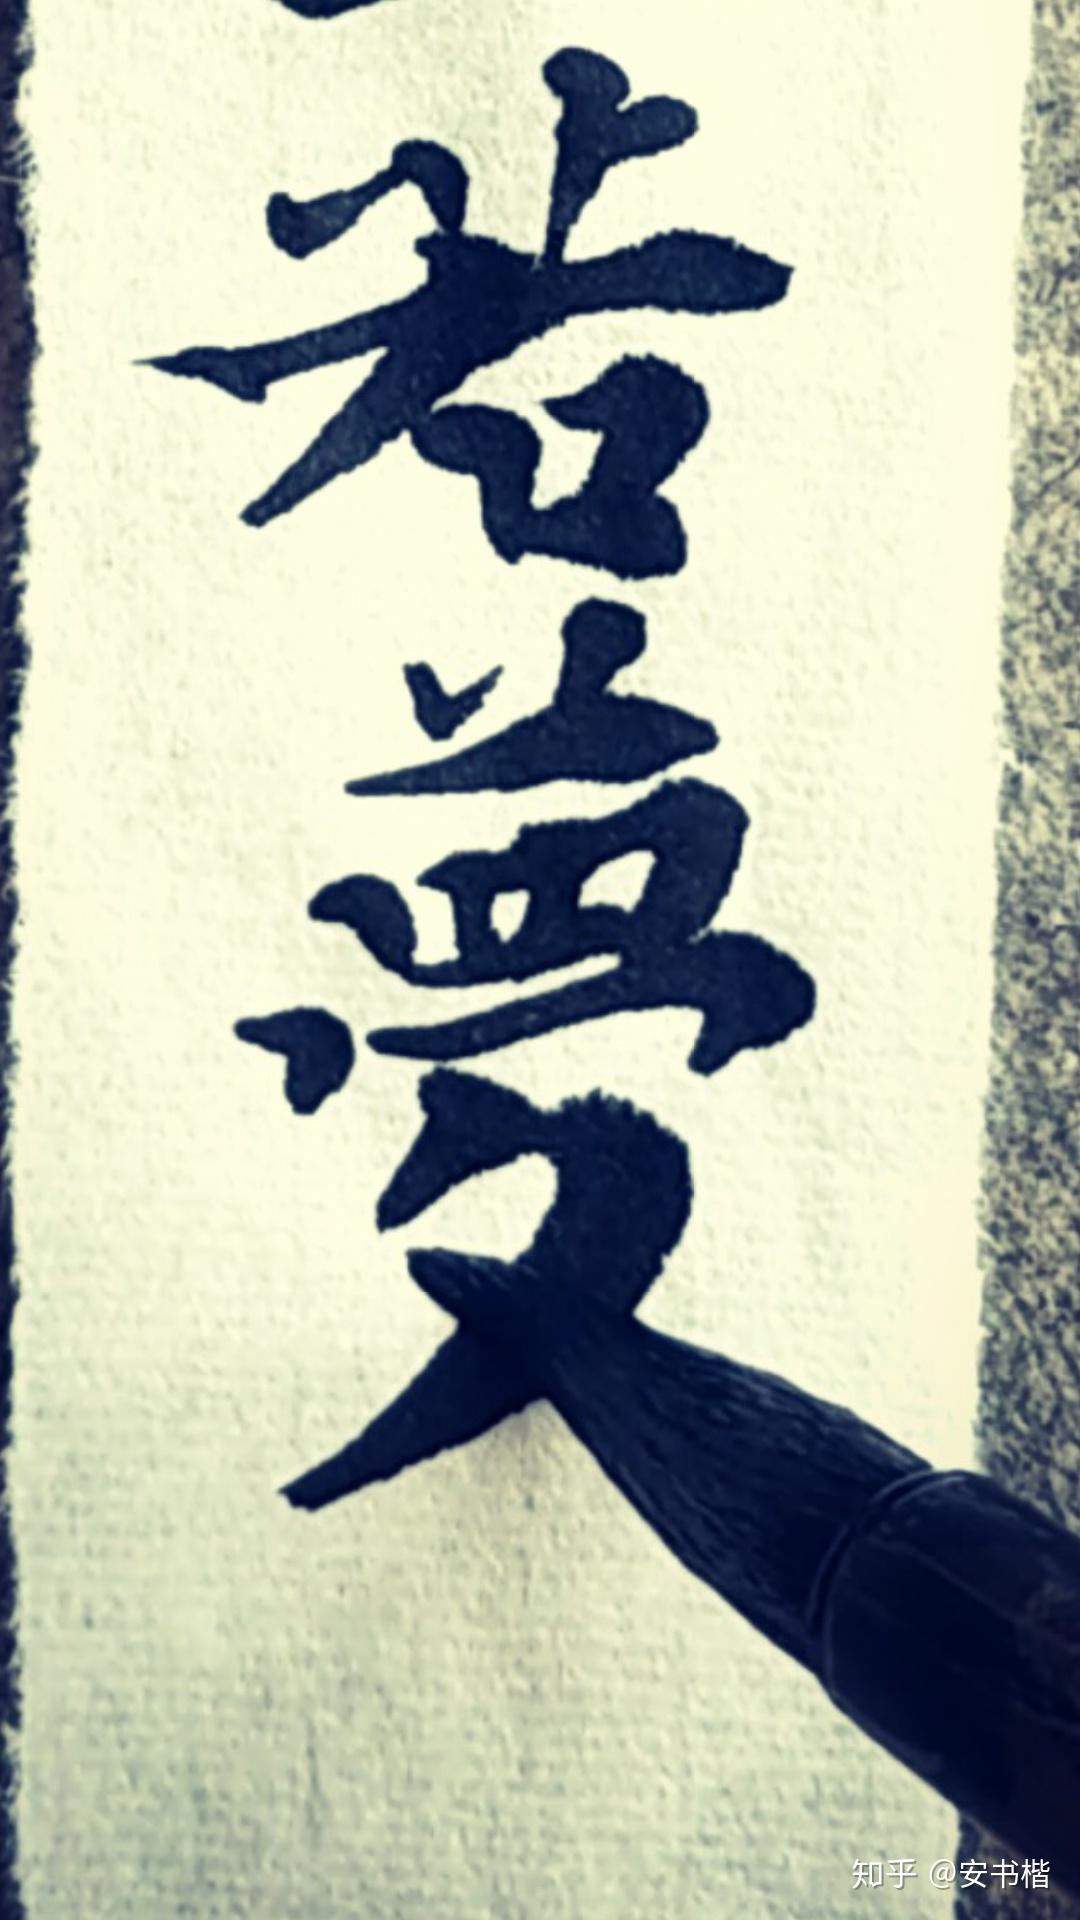 若夢
知乎 @安书楷